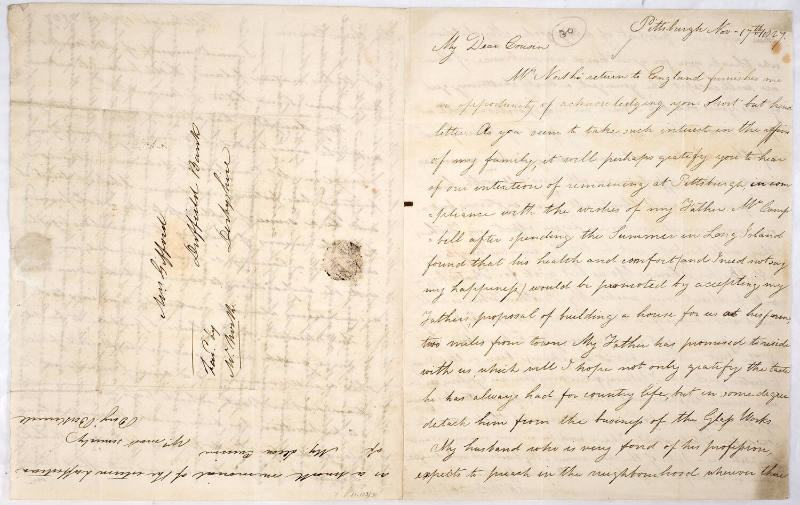 30
Pittsburgh Nov - 17th 1827.
My Dear Cousin
Mr North's return to England furnishes me
an opportunity of acknowledging your last but kind
letter. As you seem to take such interest in the affairs
of my family, it will perhaps gratify you to hear
of our intention of remaining at Pittsburgh, in com
-pliance with the wishes of my Father. Mr Camp
-bell after spending the Summer in Long Island
found that his health and comfort (and I need not say
my happiness) would be promoted by accepting my
Father's proposal of building a house for us at his farm,
two miles from town. My Father has promised to reside
with us, which will I hope not only gratify the taste
he has always had for country life, but in some degree
detach him from the business of the Glass Works.
My husband who is very fond of his profession,
expects to preach in the neighbourhood wherever there
Miss Gifford
Duffield Bank
Derbyshire
Fav.d by
Mr North.
as a small memorial of the esteem & affection
of My dear Cousin
Yr. most sincerely
Benj Bakewell